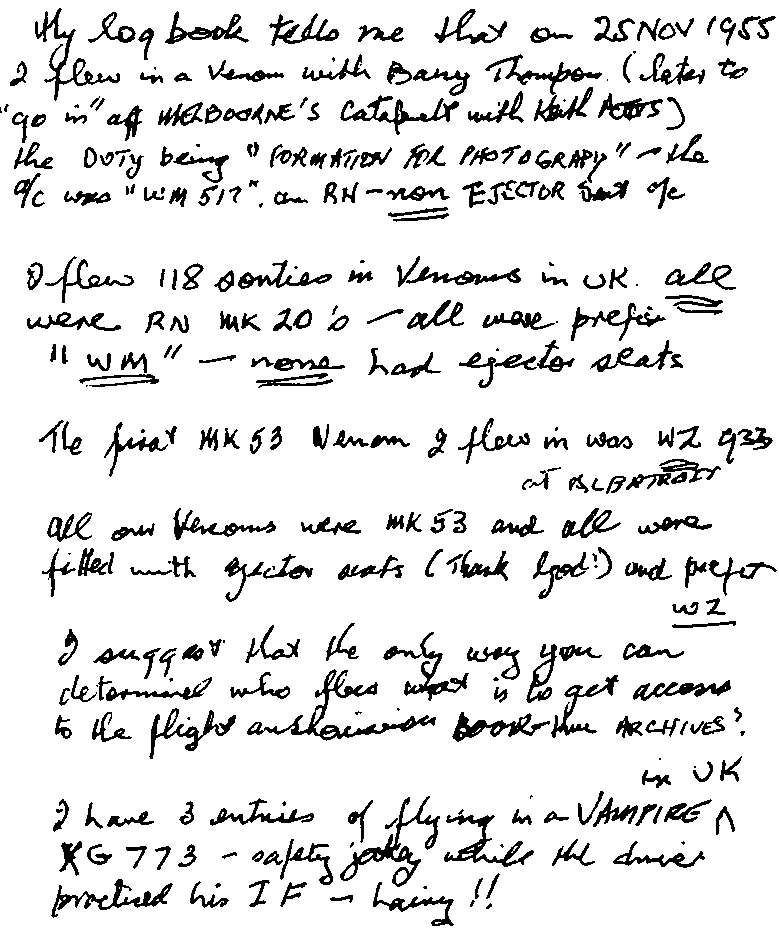 My log book tells me that on 25 NOV 1955
I flew in a Venom with Barry Thompson. (later to
"go in" off MELBOURNE'S Catapult with Keith
the DUTY being "FORMATION FOR PHOTOGRAPY" - the
a/c was "WM 517", an RN - non EJECTOR Seat a/c
I flew 118 sorties in Venoms in UK. all
were RN MK 20's - all were prefix
"WM" - none had ejector seats
The first MK 53 Venom I flew in was WZ 933
at ALBATROSS
All our Venoms were MK 53 and all were
fitted with ejector seats (Thank God!) and prefix
WZ
I suggest that the only way you can
determine who flew what is to get access
to the flight authorisation BOOK - thru ARCHIVES?
in UK
I have 3 entries of flying in a VAMPIRE ^
XG 773 - safety while the driver
practiced his I F - hairy !!